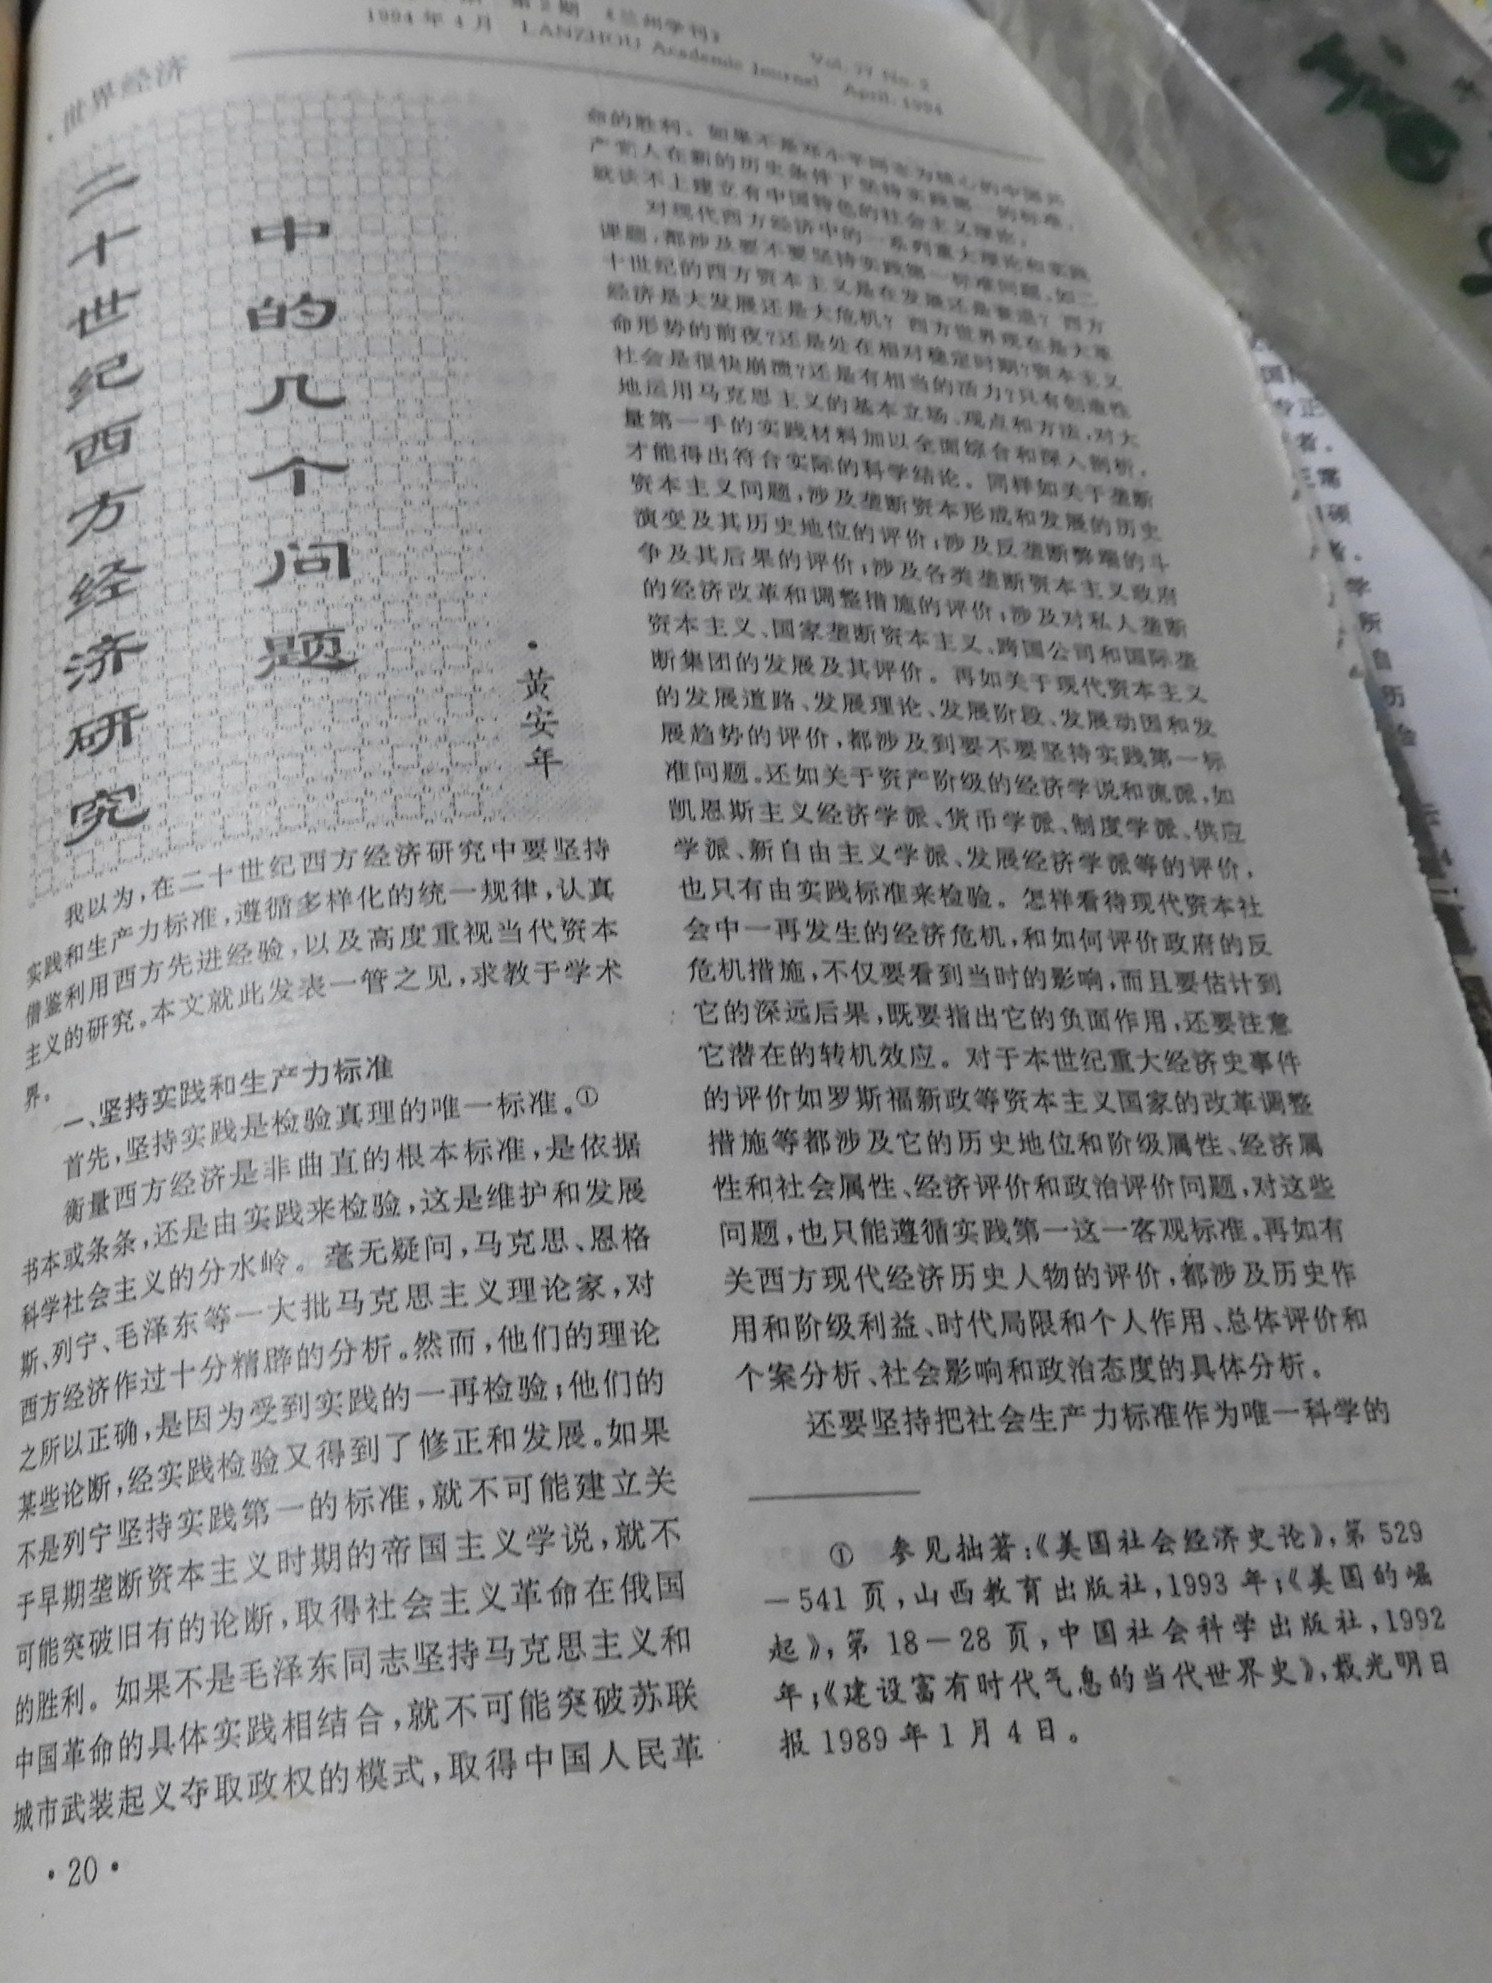 第2期 《兰州学刊》
1994年4月 LANZHOU Academic Journal April, 1994
·世界经济
二十世纪西方经济研究
中的几个问题
·黄安年
我以为,在二十世纪西方经济研究中要坚持
实践和生产力标准,遵循多样化的统一规律,认真
借鉴利用西方先进经验,以及高度重视当代资本
主义的研究。本文就此发表一管之见,求教于学术
界。
一、坚持实践和生产力标准
首先,坚持实践是检验真理的唯一标准。①
衡量西方经济是非曲直的根本标准,是依据
书本或条条,还是由实践来检验,这是维护和发展
科学社会主义的分水岭。毫无疑问,马克思、恩格
斯、列宁、毛泽东等一大批马克思主义理论家,对
西方经济作过十分精辟的分析。然而,他们的理论
之所以正确,是因为受到实践的一再检验;他们的
某些论断,经实践检验又得到了修正和发展。如果
不是列宁坚持实践第一的标准,就不可能建立关
于早期垄断资本主义时期的帝国主义学说,就不
可能突破旧有的论断,取得社会主义革命在俄国
的胜利。如果不是毛泽东同志坚持马克思主义和
中国革命的具体实践相结合,就不可能突破苏联
城市武装起义夺取政权的模式,取得中国人民革
命的胜利。如果不是邓小平同志为核心的中国共
产党人在新的历史条件下坚持实践第一的标准,
就谈不上建立有中国特色的社会主义理论。
对现代西方经济中的一系列重大理论和实践
课题,都涉及要不要坚持实践第一标准问题,如二
十世纪的西方资本主义是在发展还是衰退?西方
经济是大发展还是大危机?西方世界现在是大革
命形势的前夜?还是处在相对稳定时期?资本主义
社会是很快崩溃?还是有相当的活力?只有创造性
地运用马克思主义的基本立场、观点和方法,对大
量第一手的实践材料加以全面综合和深入剖析,
才能得出符合实际的科学结论。同样如关于垄断
资本主义问题,涉及垄断资本形成和发展的历史
演变及其历史地位的评价;涉及反垄断弊端的斗
争及其后果的评价;涉及各类垄断资本主义政府
的经济改革和调整措施的评价;涉及对私人垄断
资本主义、国家垄断资本主义、跨国公司和国际垄
断集团的发展及其评价。再如关于现代资本主义
的发展道路、发展理论、发展阶段、发展动因和发
展趋势的评价,都涉及到要不要坚持实践第一标
准问题。还如关于资产阶级的经济学说和流派,如
凯恩斯主义经济学派、货币学派、制度学派、供应
学派、新自由主义学派、发展经济学派等的评价,
也只有由实践标准来检验。怎样看待现代资本社
会中一再发生的经济危机,和如何评价政府的反
危机措施,不仅要看到当时的影响,而且要估计到
它的深远后果,既要指出它的负面作用,还要注意
它潜在的转机效应。对于本世纪重大经济史事件
的评价如罗斯福新政等资本主义国家的改革调整
措施等都涉及它的历史地位和阶级属性、经济属
性和社会属性、经济评价和政治评价问题,对这些
问题,也只能遵循实践第一这一客观标准。再如有
关西方现代经济历史人物的评价,都涉及历史作
用和阶级利益、时代局限和个人作用、总体评价和
个案分析、社会影响和政治态度的具体分析。
还要坚持把社会生产力标准作为唯一科学的
① 参见拙著:《美国社会经济史论》,第529
-541页,山西教育出版社,1993年;《美国的崛
起》,第18-28页,中国社会科学出版社,1992
年;《建设富有时代气息的当代世界史》,载光明日
报1989年1月4日。
·20·